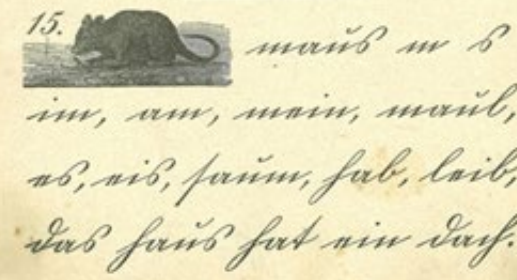 15. maus m s
im, am, mein, maul,
es, eis, saum, hab, leib,
das haus hat ein dach.